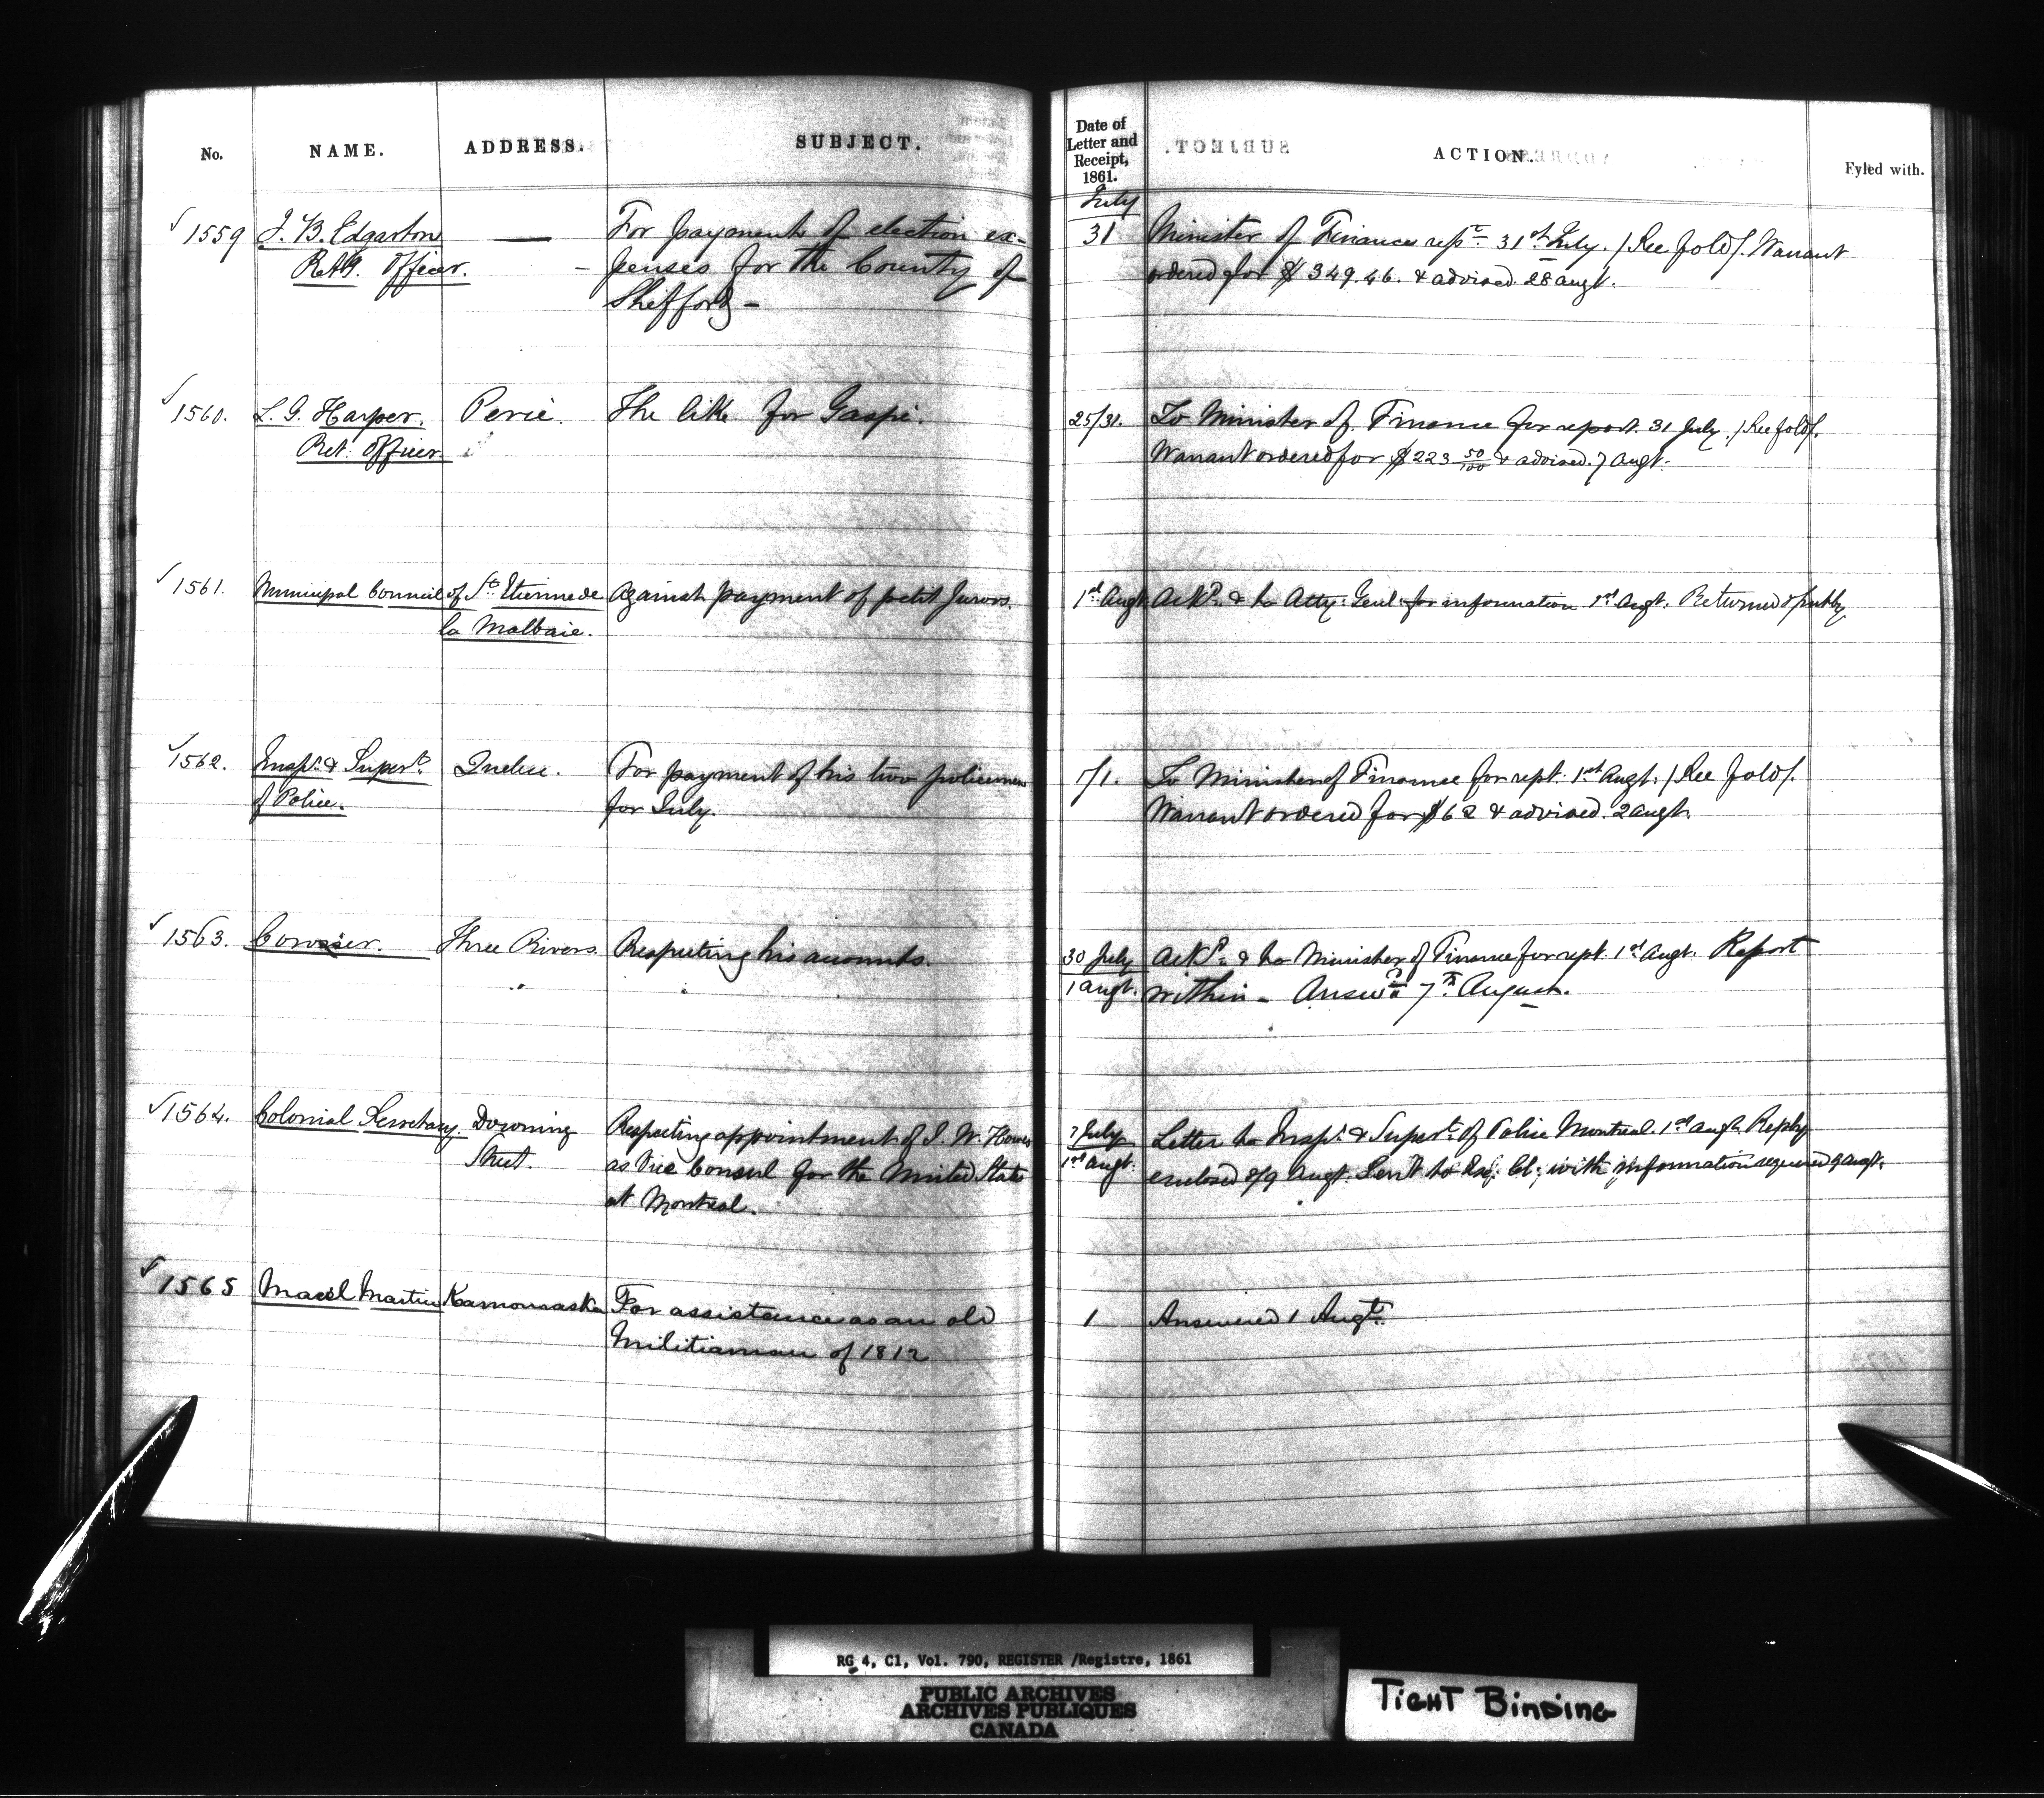 No. NAME. ADDRESS. SUBJECT. Date of Letter and Receipt, 1861. ACTION. Fyled with.
July
✓ 1559 J. B. Edgarton — For payment of election ex- 31 Minister of Finance rept. 31st July. / See fold /. Warrant
Retg. Officer. - penses for the County of ordered for $349.46. & advised. 28 augt.
Shefford -
✓ 1560. L. G. Harper. Percé. The like for Gaspé. 25/31. To Minister of Finance for report. 31 July. / See fold /.
Ret: Officer Warrant ordered for $223 50/100 & advised. 7 augt.
✓ 1561. Municipal Council of St. Etienne de Against payment of petit Jurors. 1st Augt Ackd. & to Atty: Genl. for information 1st Augt. Returned &
la Malbaie.
✓ 1562. Inspr. & Supert. Quebec. For payment of his two policemen 1/1. To Minister of Finance for rept. 1st Augt. / See fold /.
of Police. for July. Warrant ordered for $62 & advised. 2 augt.
✓ 1563. Coroner. Three Rivers. Respecting his accounts. 30 July Ackd. & to Minister of Finance for rept. 1st Augt. Report
1 augt. within - Answd 7th August.
✓ 1564. Colonial Secretary. Downing Respecting appointment of J. W. Howes 7 July Letter to Inspr. & Supert. of Police Montreal. 1st augt. Reply
Street. as Vice Consul for the United States 1st augt. enclosed 8/9 Augt. Sent to Ex: Cl: with information required 9 augt.
at Montreal.
✓ 1565 Martin Kamouraska For assistance as an old 1 Answered 1 Augt.
Militiaman of 1812
RG 4, C1, Vol. 790, REGISTER /Registre, 1861
PUBLIC ARCHIVES
ARCHIVES PUBLIQUES
CANADA
TIGHT BINDING